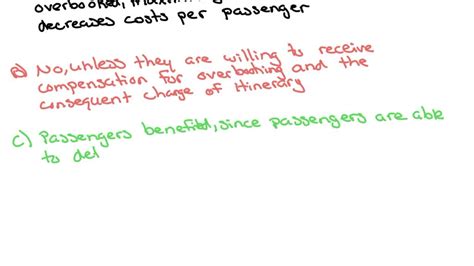 overbooked,
decreases costs per passenger
a) No, unless they are willing to receive
compensation for overbooking and the
consequent change of itinerary
c) Passengers benefited, since passengers are able
to del